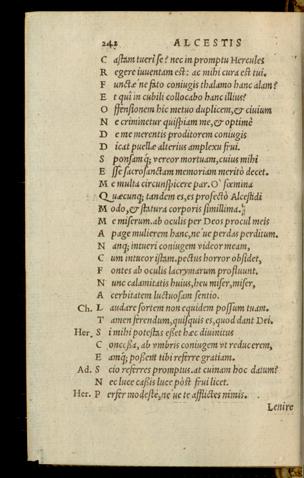 242 ALCESTIS
C astam tueri se? nec in promptu Hercules
R egere iuuentam est: ac mihi cura est tui.
F unctæ ne fato coniugis thalamo hanc alam?
E t quî in cubili collocabo hanc illius?
O ffensionem hic metuo duplicem, & ciuium
N e criminetur quispiam me, & optimè
D e me merentis proditorem coniugis
D icat puellæ alterius amplexu frui.
S ponsamq; vereor mortuam, cuius mihi
E sse sacrosanctam memoriam meritò decet.
M e multa circunspicere par. O' fœmina
Q uæcunq; tandem es, es profectò Alcestidi
M odo, & statura corporis simillima.
M e miserum. ab oculis per Deos procul meis
A page mulierem hanc, ne me perdas perditum.
N anq; intueri coniugem videor meam,
C um intueor istam. pectus horror obsidet,
F ontes ab oculis lacrymarum profluunt.
N unc calamitatis huius, heu miser, miser,
A cerbitatem luctuosam sentio.
Ch. L audare sortem non equidem possum tuam.
T amen ferendum, quisquis es, quod dant Dei.
Her. S i mihi potestas esset hæc diuinitus
C oncessa, ab vmbris coniugem vt reducerem,
E amq; possent tibi referre gratiam.
Ad. S cio referres promptus. at cuinam hoc datum?
N ec luce cassis luce pòst frui licet.
Her. P erfer modestè, ne te afflictes nimis.
Lenire